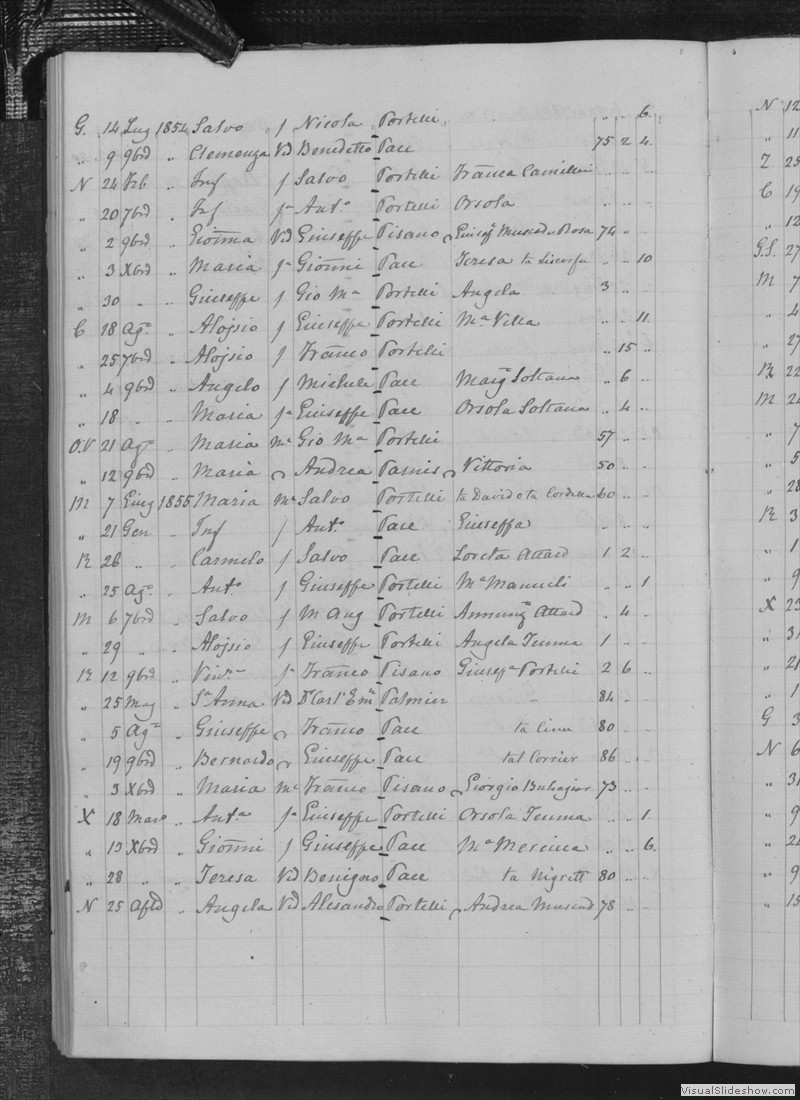 G. 14 Lug 1854 Salvo f Nicola Portelli .. .. 6.
.. 9 9brd .. Clemenza Vd Benedetto Pace 75 2 4.
N 24 Feb .. Inf f Salvo Portelli Franca Camilleri .. .. ..
.. 20 7brd .. Inf fa Anto Portelli Orsola .. .. ..
.. 2 9brd .. Giovanna Vd Giuseppe Pisano Rosa 74 ..
.. 3 Xbrd .. Maria fa Gionni Pace Teresa ta .. .. 10
.. 30 .. .. Giuseppe f Gio Ma Portelli Angela 3 .. ..
C 18 Ago .. Alojsio f Giuseppe Portelli Ma Vella .. .. 11.
.. 25 7brd .. Alojsio f Franco Portelli .. 15 ..
.. 4 9brd .. Angelo f Michele Pace Soltana .. 6 ..
.. 18 .. .. Maria fa Giuseppe Pace Orsola Soltana .. 4 ..
O.V 21 Ago .. Maria me Gio Ma Portelli 57 .. ..
.. 12 9brd .. Maria Andrea Pamis Vittoria 50 .. ..
M 7 Giug 1855 Maria me Salvo Portelli ta David o ta 60 .. ..
.. 21 Gen .. Inf f Anto Pace Giuseppa .. .. ..
R 26 .. .. Carmelo f Salvo Pace Loreta Attard 1 2 ..
.. 25 Ago .. Anto f Giuseppe Portelli Ma Mamueli .. .. 1
M 6 7brd .. Salvo f M Ang Portelli Annunz Attard .. 4 ..
.. 29 .. .. Alojsio f Giuseppe Portelli Angela Tenma 1 .. ..
R 12 9brd .. Vinza fa Franco Pisano Giusepa Portelli 2 6 ..
.. 25 Mag .. Sra Anna Vd Dr Carlo Emle Palmier - 84 ..
.. 5 Ago .. Giuseppe Franco Pace ta Cinu 80 ..
.. 19 9brd .. Bernardo Giuseppe Pace tal Corrier 86 ..
.. 3 Xbrd .. Maria me Franco Pisano Giorgio Buhagiar 73 .. ..
X 18 Marzo .. Anta fa Giuseppe Portelli Orsola Tenma .. .. 1.
.. 13 Xbrd .. Gionni f Giuseppe Pace Ma Mercieca .. .. 6.
.. 28 .. .. Teresa Vd Benigno Pace ta Nigrett 80 .. ..
N 25 .. Angela Vd Alesandro Portelli Andrea Muscud 78 .. ..
N 12
.. 11
Z 25
C 19
.. 12
G.S. 27
M 7
.. 4
.. 27
R 22
M 24
.. 7
.. 5
.. 28
R 3
.. 1
.. 9
X 23
.. 31
.. 21
.. 1
G 3
N 6
.. 31
.. 9
.. 24
.. 9
.. 15
VisualSlideshow.com